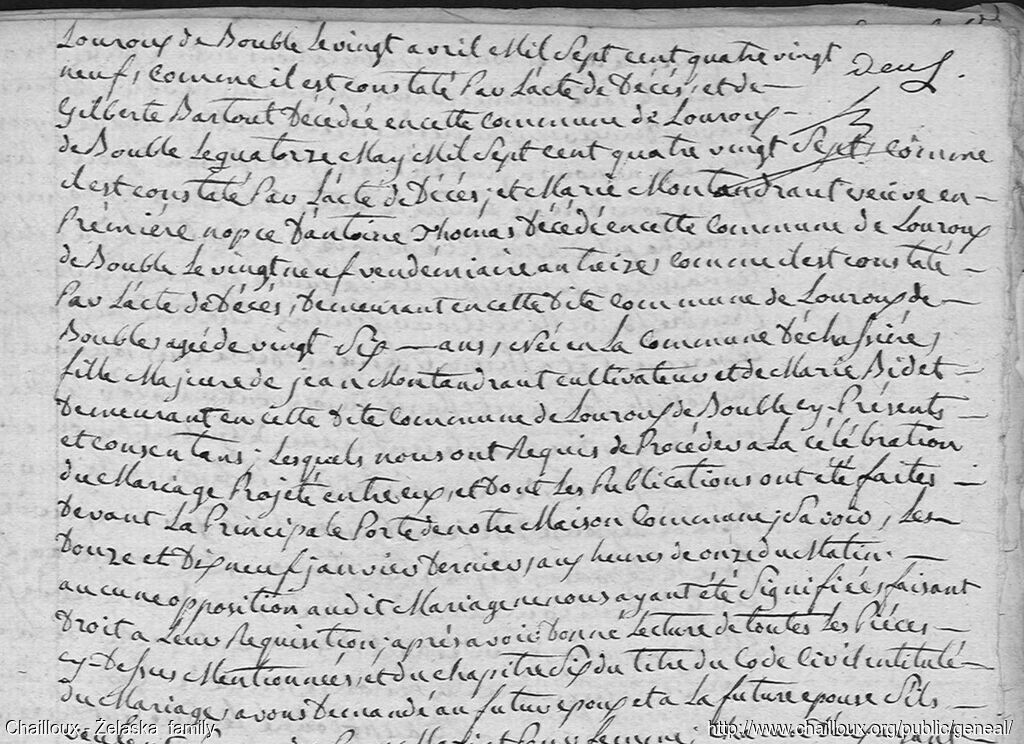 Louroux de Bouble le vingt avril mil sept cent quatre vingt
deux.
neuf, comme il est constaté par l'acte de décés, et de
Gilberte Bartout décédée en cette commune de Louroux
de Bouble le quatorze may mil sept cent quatre vingt sept, comme
il est constaté par l'acte de décés; et Marie Montandraut veuve en
prémiére nopce d'antoine thomas décédé en cette commune de Louroux
de Bouble le vingt neuf vendémiaire an treize, comme il est constaté
par l'acte de décés, demeurant en cette dite commune de Louroux de
Bouble, agée de vingt six ans, née en la commune d'échassiére,
fille majeure de jean Montandraut cultivateur et de Marie Bidet
demeurant en cette dite commune de Louroux de Bouble cy-présents
et consentans; lesquels nous ont requis de procéder a la célébration
du mariage projeté entre eux, et dont les publications ont été faites
devant la principale porte de notre maison commune; savoir, les
douze et dix neuf janvier dernier, aux heures de onze du matin.
aucune opposition audit mariage ne nous ayant été signifiée, faisant
droit a leur requisition; aprés avoir donné lecture de toutes les piéces
cy-dessus mentionnées, et du chapitre six du titre du code civil intitulé
du mariage, avons demandé au futur epoux et a la future epouse s'ils
Chailloux - Żelaska family
http://www.chailloux.org/public/geneal/